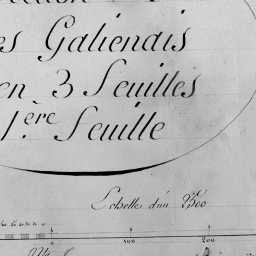 es Galiendis
en 3 Feuilles
1.ère Feuille
Echelle d'un à 2500
100 200